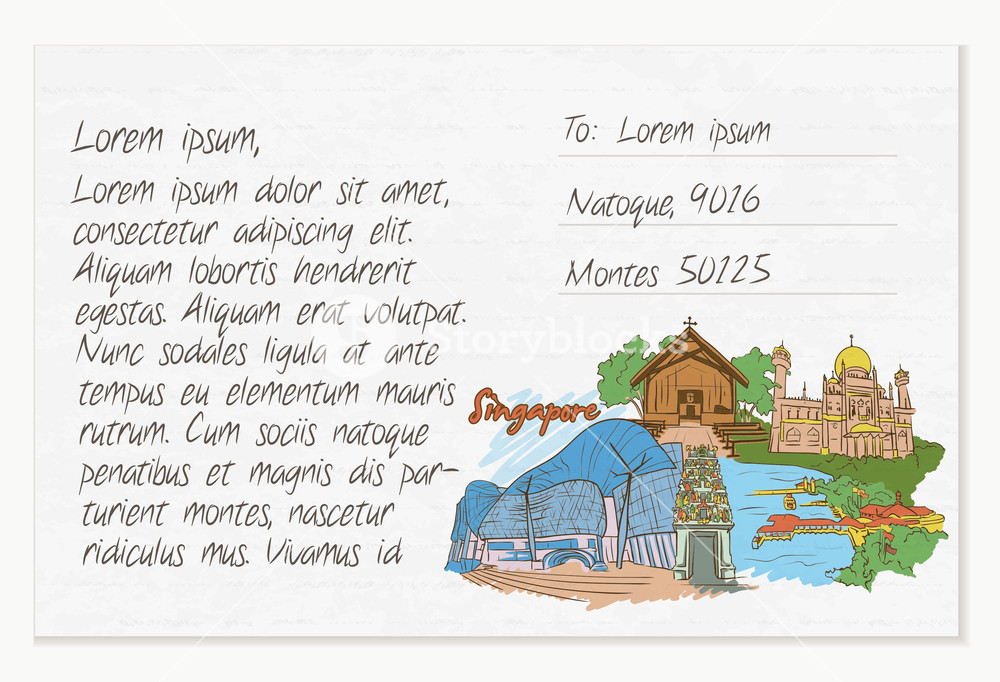 Lorem ipsum,
Lorem ipsum dolor sit amet,
consectetur adipiscing elit.
Aliquam lobortis hendrerit
egestas. Aliquam erat volutpat.
Nunc sodales ligula at ante
tempus eu elementum mauris
rutrum. Cum sociis natoque
penatibus et magnis dis par-
turient montes, nascetur
ridiculus mus. Vivamus id
To: Lorem ipsum
Natoque, 9016
Montes 50125
Singapore
Storyblocks